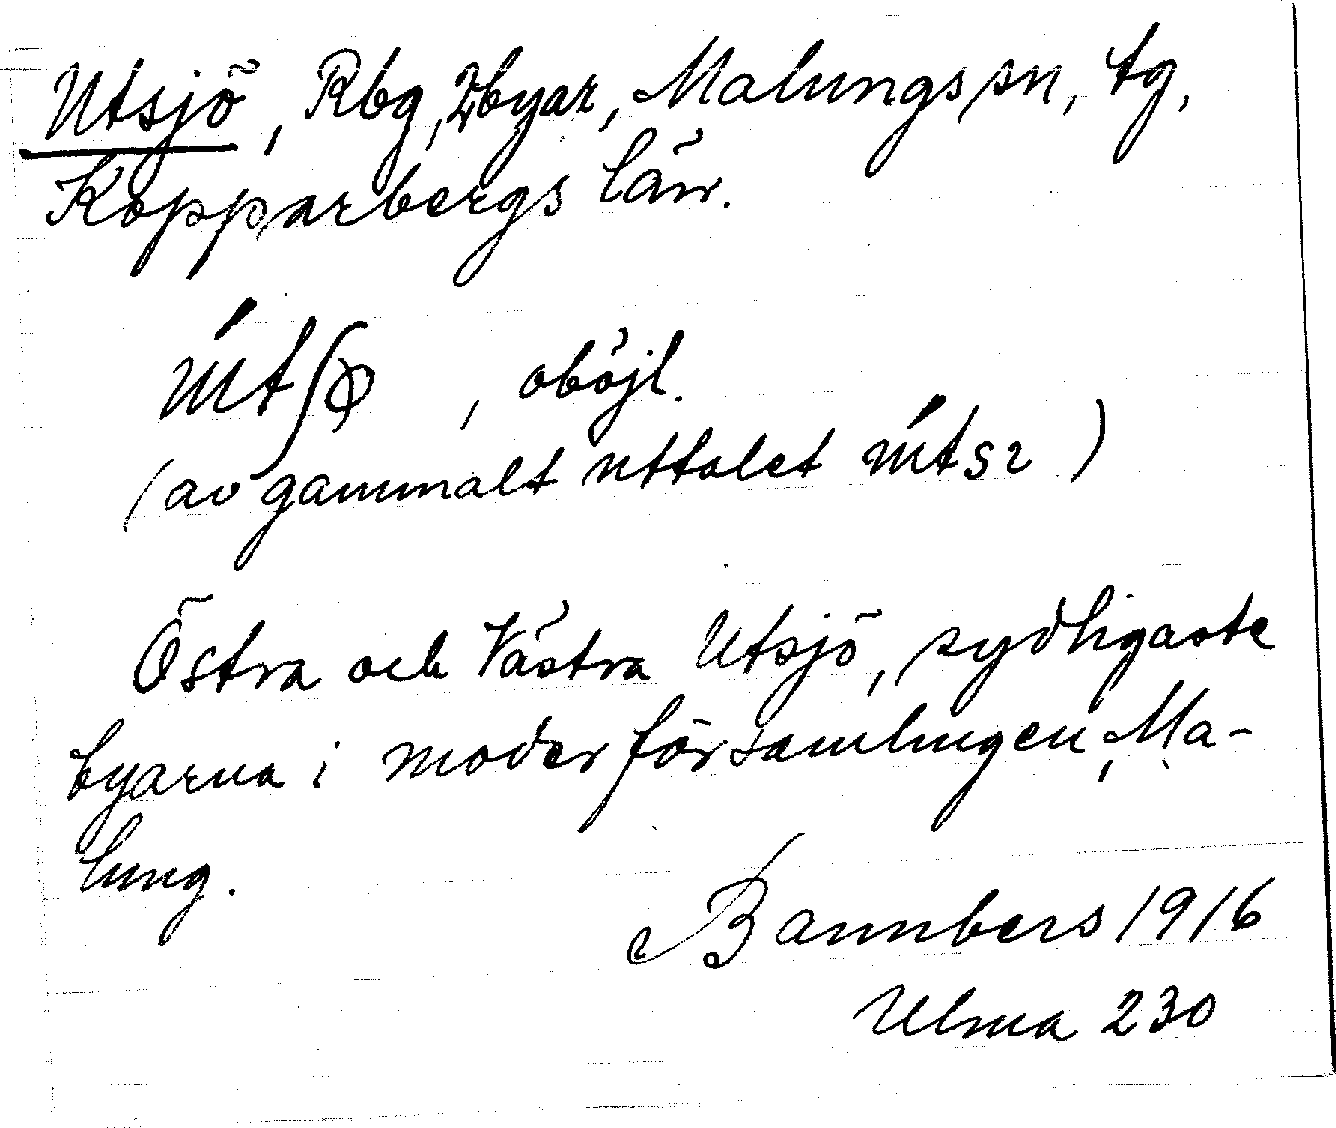 Utsjö, Rbg, 2 byar, Malungs sn, tg,
Kopparbergs län.
útʃø, oböjl.
(av gammalt uttalet útsɿ)
Östra och Västra Utsjö, sydligaste
byarna i moderförsamlingen, Ma-
lung.
Bannbers 1916
Ulma 230